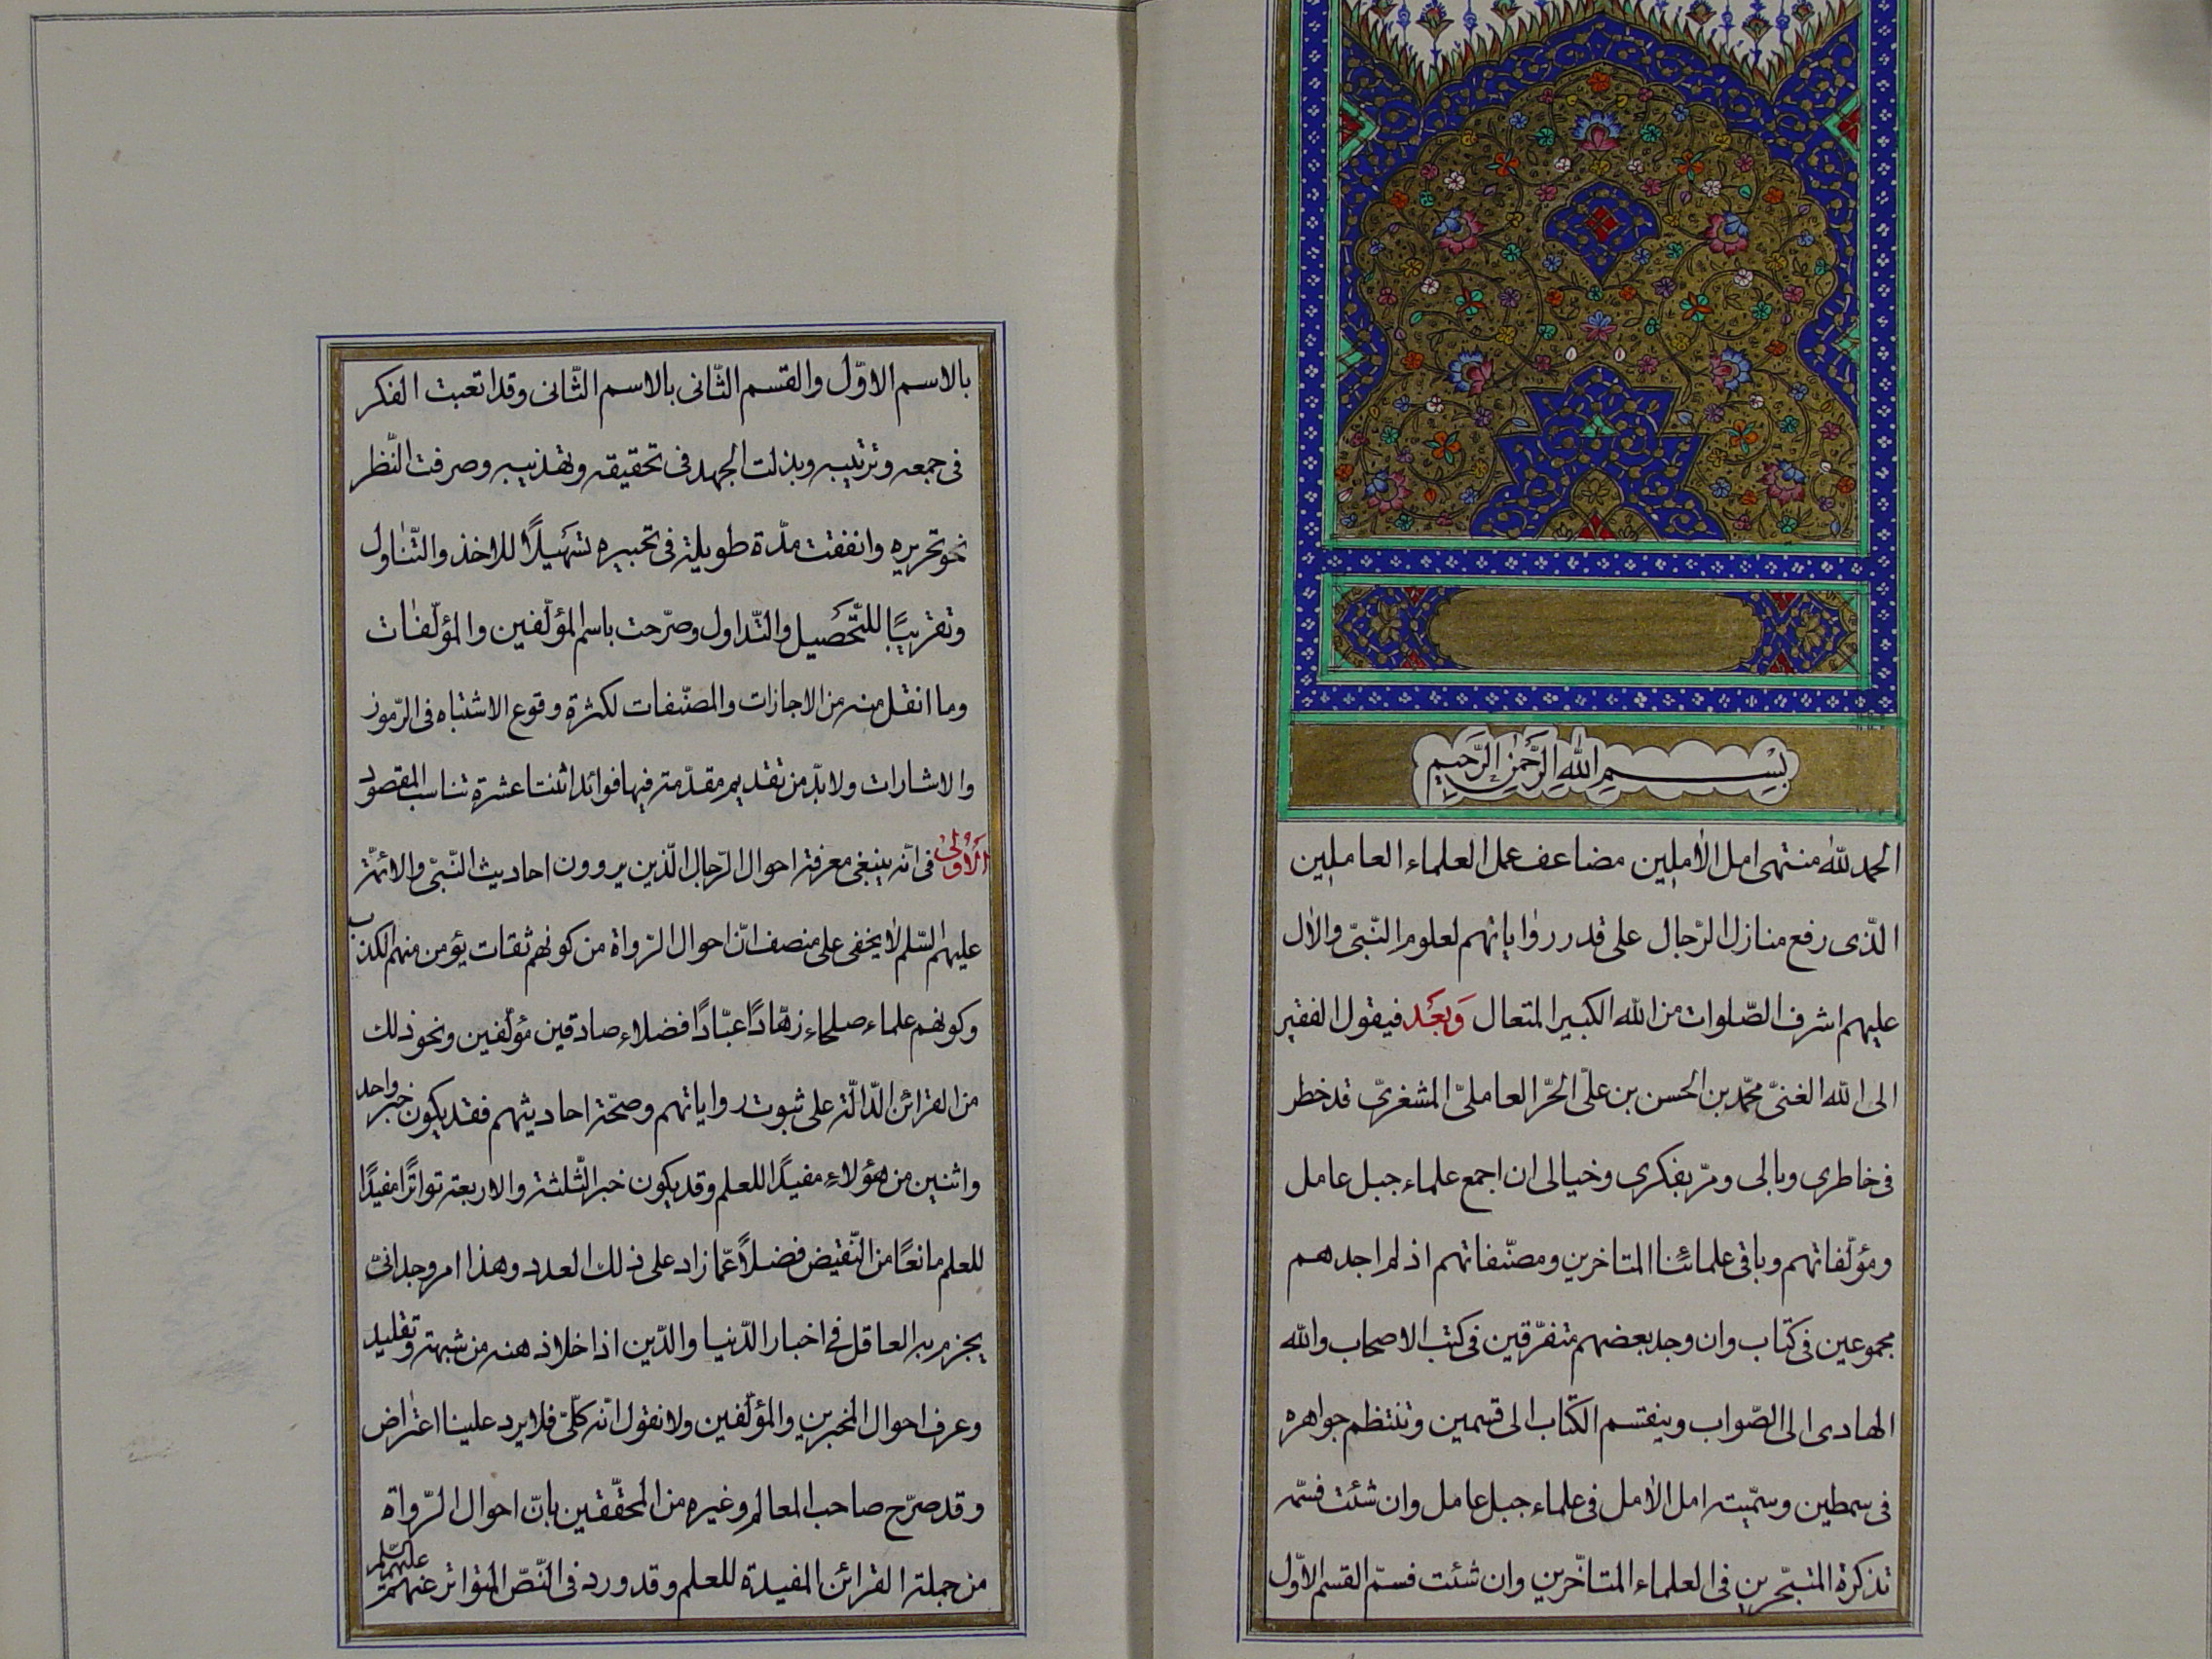 بِسْمِ اللهِ الرَّحْمٰنِ الرَّحِيمِ
الحمد لله منتهى امل الآملين مضاعف عمل العلماء العاملين
الذّى رفع منازل الرّجال على قدر رواياتهم لعلوم النّبىّ والآل
عليهم اشرف الصّلوات من الله الكبير المتعال وَبَعْد فيقول الفقير
الى الله الغنىّ محمّد بن الحسن بن علىّ الحرّ العاملىّ المشغرىّ قد خطر
فى خاطرى وبالى ومرّ بفكرى وخيالى ان اجمع علماء جبل عامل
ومؤلّفاتهم وباقى علمائنا المتاخرين ومصنّفاتهم اذ لم اجدهم
مجموعين فى كتاب وان وجد بعضهم متفرّقين فى كتب الاصحاب والله
الهادى الى الصّواب وينقسم الكتاب الى قسمين وتنتظم جواهره
فى سمطين وسمّيته امل الآمل فى علماء جبل عامل وان شئت فسمّه
تذكرة المتبحّرين فى العلماء المتاخّرين وان شئت فسمّ القسم الاوّل
بالاسم الاوّل والقسم الثّانى بالاسم الثّانى وقد اتعبت الفكر
فى جمعه وترتيبه وبذلت الجهد فى تحقيقه وتهذيبه وصرفت النّظر
نحو تحريره وانفقت مدّة طويلة فى تحبيره تسهيلاً للاخذ والتّناول
وتقريبًا للتّحصيل والتّداول وصرّحت باسم المؤلّفين والمؤلّفات
وما انقل منه من الاجازات والمصنّفات لكثرة وقوع الاشتباه فى الرّموز
والاشارات ولا بدّ من تقديم مقدّمة فيها فوائد اثنتا عشرة تناسب المقصود
الأولى فى انّه ينبغى معرفة احوال الرّجال الّذين يروون احاديث النّبىّ والائمّة
عليهم السّلم لا يخفى على منصف انّ احوال الرّواة من كونهم ثقات يؤمن منهم الكذب
وكونهم علماء صلحاء زهّادًا عبّادًا فضلاء صادقين مؤلّفين ونحو ذلك
من القرائن الدّالّة على ثبوت رواياتهم وصحّة احاديثهم فقد يكون خبر واحد
واثنين من هؤلاء مفيدًا للعلم وقد يكون خبر الثّلثة والاربعة تواترًا مفيدًا
للعلم مانعًا من النّقيض فضلاً عمّا زاد على ذلك العدد وهذا امر وجدانىّ
يجزم به العاقل فى اخبار الدّنيا والدّين اذا خلا ذهنه من شبهة وتقليد
وعرف احوال المخبرين والمؤلّفين ولا نقول انّه كلّىّ فلا يرد علينا اعتراض
وقد صرّح صاحب المعالم وغيره من المحقّقين بانّ احوال الرّواة
من جملة القرائن المفيدة للعلم وقد ورد فى النّصّ المتواتر عنهم عليهم السّلم